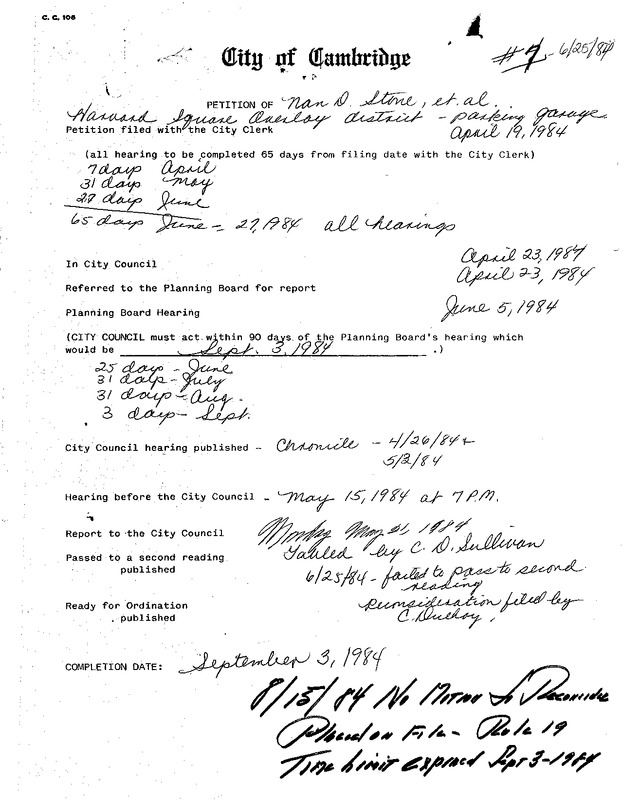 C. C. 106
City of Cambridge
#7 - 6/25/84
PETITION OF Nan D. Stone, et. al.
Harvard Square Overlay district - parking garage
Petition filed with the City Clerk April 19, 1984
(all hearing to be completed 65 days from filing date with the City Clerk)
7 days April
31 days May
27 days June
65 days June - 27, 1984 all hearings
In City Council April 23, 1984
April 23, 1984
Referred to the Planning Board for report
Planning Board Hearing June 5, 1984
(CITY COUNCIL must act within 90 days of the Planning Board's hearing which
would be Sept. 3, 1984 .)
25 days - June
31 days - July
31 days - Aug.
3 days - Sept.
City Council hearing published - Chronicle - 4/26/84 +
5/3/84
Hearing before the City Council - May 15, 1984 at 7 P.M.
Report to the City Council Monday May 21, 1984
Tabled by C. D. Sullivan
Passed to a second reading
published 6/25/84 - failed to pass to second
reading
Ready for Ordination reconsideration filed by
. published C. Duehay,
COMPLETION DATE: September 3, 1984
8/15/84 No Motion To Reconsider
Placed on File - Rule 19
Time Limit expired Sept 3 - 1984